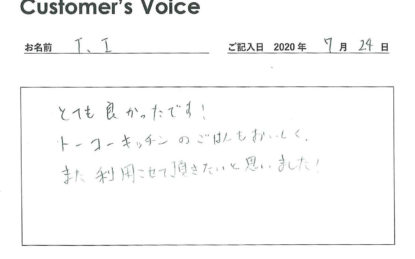 Customer's Voice
お名前 T、I ご記入日 2020年 7月 24日
とても良かったです!
トーコーキッチンのごはんもおいしく、
また利用させて頂きたいと思いました!